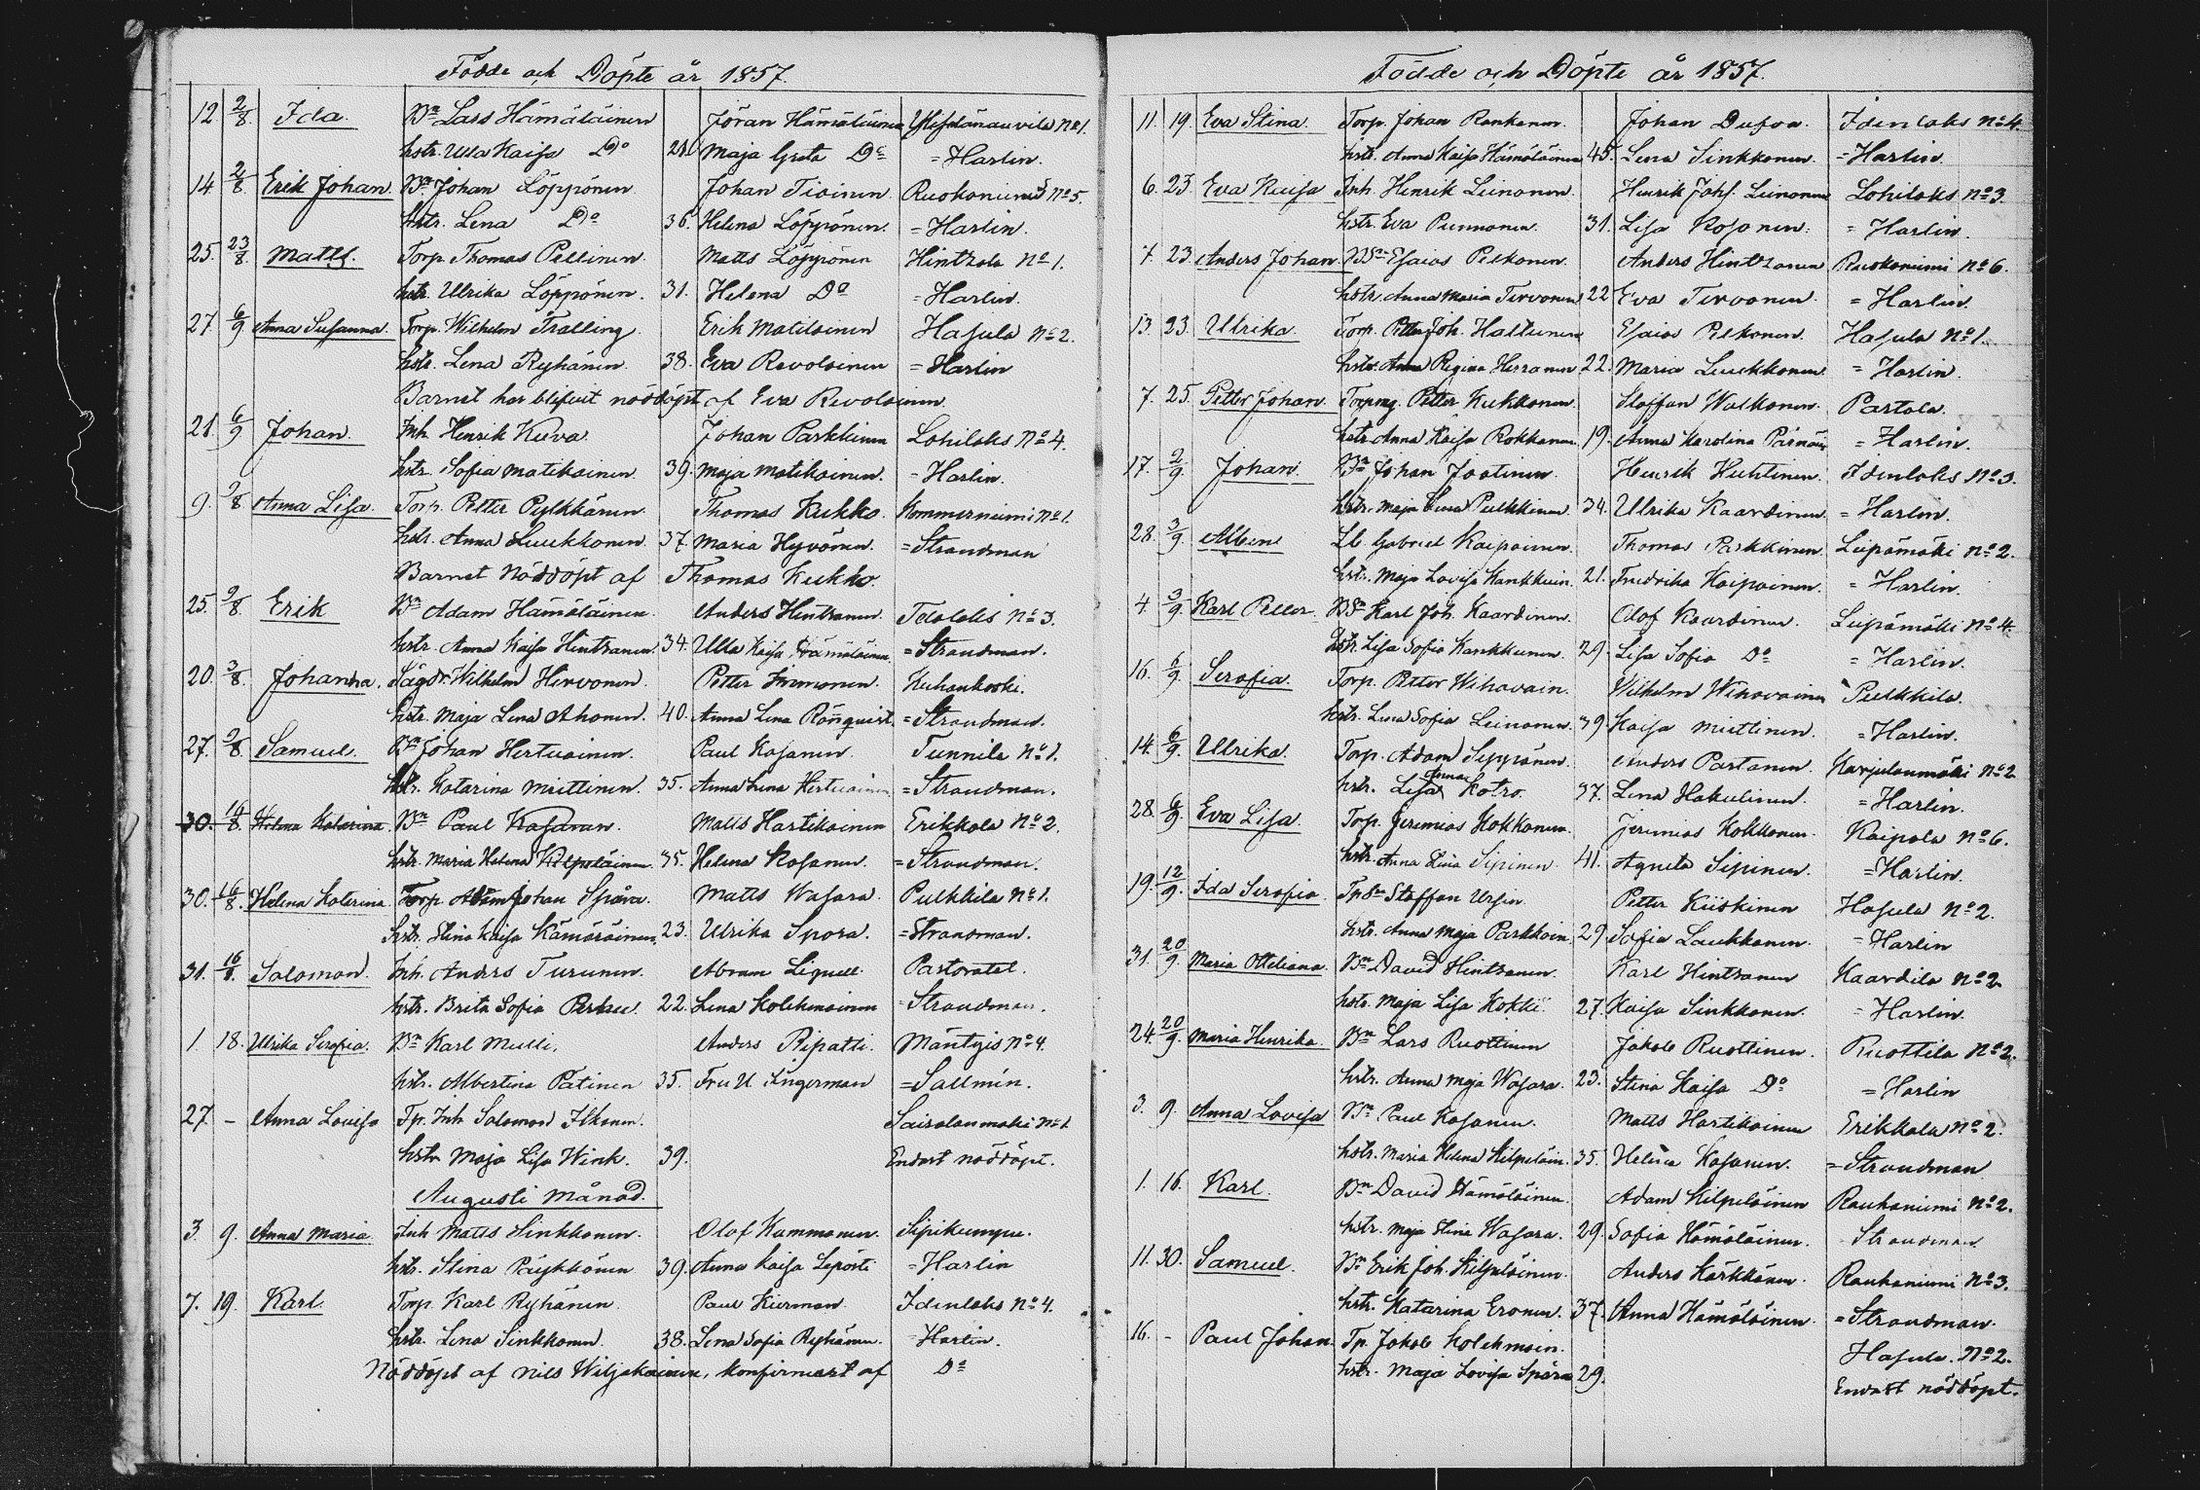 Födde och Döpte år 1857.
12 2/8. Ida. Bn Lars Hämäläinen Jöran Hämäläinen No 1.
hstr. Ulla Kaisa Do Maja Greta Do = Harlin.
14 2/8 Erik Johan. Bn Johan Löppönen Johan Toivinen Ruokoniemi No 5.
hstr. Lena Do 36. Helena Löppönen. = Harlin.
25. 23/8 Matts. Torp. Thomas Pellinen. Matts Löppönen Hintsala No 1.
hstr. Ulrika Löppönen. 31. Helena Do = Harlin.
27. 6/9 Anna Susanna. Torp. Wilhelm Tralling Erik Matilainen Hasula No 2.
hstr. Lena Ryhänen. 38. Eva Revolainen = Harlin
Barnet har blifvit nöddöpt af Eva Revolainen
21. 6/9 Johan. Inh. Henrik Kuva. Johan Parkkinen Lohilaks No 4.
hstr. Sofia Matikainen 39. Maja Matikainen. = Harlin.
9. 9/8 Anna Lisa. Torp. Petter Pylkkänen Thomas Kukko. Kommerniemi No 1.
hstr. Anna Luukkonen 37. Maria Hyvönen. = Strandman
Barnet Nöddöpt af Thomas Kukko.
25. 9/8 Erik Bn Adam Hämäläinen Anders Hintsanen. No 3.
hstr. Anna Kaisa Hintsanen. 34. Ulla Kaisa Hämäläinen = Strandman.
20. 3/8. Johanna. Wilhelm Hirvonen. Petter Immonen. Kuhankoski.
hstr. Maja Lena Ahonen. 40. Anna Lena Rönquist. = Strandman.
27. 9/8. Samuel. Bn Johan Hertuainen. Paul Kosanen. Tunnila No 1.
hstr. Katarina Miettinen. 35. Anna Lena Hertuainen = Strandman.
30. 16/8. Helena Katarina. Bn Paul Kosanen. Matts Hartikainen Erikkala No 2.
hstr. Maria Helena Kilpeläinen 35. Helena Kosanen. = Strandman.
30. 16/8. Helena Katarina Torp. Adam Johan Spåra. Matts Wasara. Pulkkila No 1.
hstr. Stina Kaisa Kämäräinen. 23. Ulrika Spora. = Strandman.
31. 16/8. Salomon. Inh. Anders Turunen. Abram Liqvell. Pastoratet.
hstr. Brita Sofia 22. Lena Kolehmainen = Strandman.
1. 18. Ulrika Serafia. Bn Karl Mulli. Anders Ripatti. Mäntyis No 4.
hstr. Albertina Pätinen 35. Fru U Ingerman = Sallmén.
27. – Anna Lovisa Tp. Inh Salomon Itkonen. No 1
hstr Maja Lisa Wink. 39. Endast nöddöpt.
Augusti Månad.
3. 9. Anna Maria Inh Matts Sinkkonen. Olof Kammonen. Sipikumpu.
hstr. Stina Päykkönen 39. Anna Kaisa = Harlin
7. 19. Karl. Torp. Karl Ryhänen. Paul Kurman. Idenlaks No 4.
hstr. Lena Sinkkonen. 38. Lena Sofia Ryhänen. = Harlin.
Nöddöpt af Nils Wiljakainen, konfirmerat af Do
Födde och Döpte år 1857.
11. 19. Eva Stina. Torp. Johan Ronkanen. Johan Dufva. Idenlaks No 4.
hstr. Anna Kaisa Hämäläinen 45. Lena Sinkkonen. = Harlin.
6. 23. Eva Kaisa Inh. Henrik Leinonen. Henrik Joh. Leinonen Lohilaks No 3.
hstr. Eva Punnonen. 31. Lisa Kosonen. = Harlin.
7. 23. Anders Johan. BSn Esaias Pelkonen. Anders Hintsanen Ruokoniemi No 6.
hstr. Anna Maria Tervonen 22 Eva Tervonen. = Harlin.
13. 23. Ulrika. Torp. Petter Joh. Haltunen Esaias Pelkonen. Hasula No 1.
hstr. Anna Regina Herranen 22. Maria Luukkonen. = Harlin.
7. 25. Petter Johan. Petter Kukkonen. Staffan Walkonen. Partala.
hstr. Anna Kaisa Rokkanen. 19. Anna Karolina Pärnänen = Harlin.
17. 2/9. Johan. Bn Johan Jaatinen. Henrik Huhtinen. Idenlaks No 3.
hstr. Maja Lena Pulkkinen. 34. Ulrika Kaardinen. = Harlin.
28. 3/9. Albin Lb Gabriel Kaipainen. Thomas Parkkinen. Liipämäki No 2.
hstr. Maja Lovisa Kankkuin. 21. Fredrika Kaipainen. = Harlin.
4. 3/9. Karl Petter. BSn Karl Joh. Kaardinen. Olof Kaardinen. Liipämäki No 4.
hstr. Lisa Sofia Kankkunen. 29. Lisa Sofia Do = Harlin.
16. 6/9. Serafia. Torp. Petter Wihavain. Wilhelm Wihavainen Pulkkila.
hstr. Lena Sofia Leinonen. 39. Kaisa Miettinen. = Harlin.
14. 6/9. Ulrika. Torp. Adam Seppänen. Anders Partanen. Karjulanmäki No 2
hstr. Lisa Anna Kotro. 37. Lena Hakulinen. = Harlin.
28. 6/9. Eva Lisa. Torp. Jeremias Kokkonen. Jeremias Kokkonen. Kaipola No 6.
hstr. Anna Lisa Sipinen. 41. Agneta Sipinen. = Harlin.
19. 12/9. Ida Serafia. TpSn Staffan Ursin. Petter Kiiskinen Hasula No 2.
hstr. Anna Maja Parkkoin. 29. Sofia Laukkanen. = Harlin
31. 20/9. Maria Ottiliana. Bn David Hintsanen. Karl Hintsanen Kaardila No 2.
hstr. Maja Lisa Kokki. 27. Kaisa Sinkkonen. = Harlin.
24. 20/9. Maria Henrika. Bn Lars Ruottinen Jakob Ruottinen. Ruottila No 2.
hstr. Anna Maja Wasara. 23. Stina Kaisa Do = Harlin
3. 9. Anna Lovisa Bn Paul Kosanen. Matts Hartikainen Erikkala No 2.
hstr. Maria Helena Kilpeläin. 35. Helena Kosanen. = Strandman
1. 16. Karl. Bn David Hämäläinen. Adam Kilpeläinen Rauhaniemi No 2.
hstr. Maja Stina Wasara. 29. Sofia Hämäläinen. = Strandman
11. 30. Samuel. Bn Erik Joh. Kilpeläinen. Anders Kärkkänen. Rauhaniemi No 3.
hstr. Katarina Eronen. 37. Anna Hämäläinen. = Strandman.
16. – Paul Johan. Tp. Jakob Kolehmain. Hasula. No 2.
hstr. Maja Lovisa Spåra 29. Endast nöddöpt.